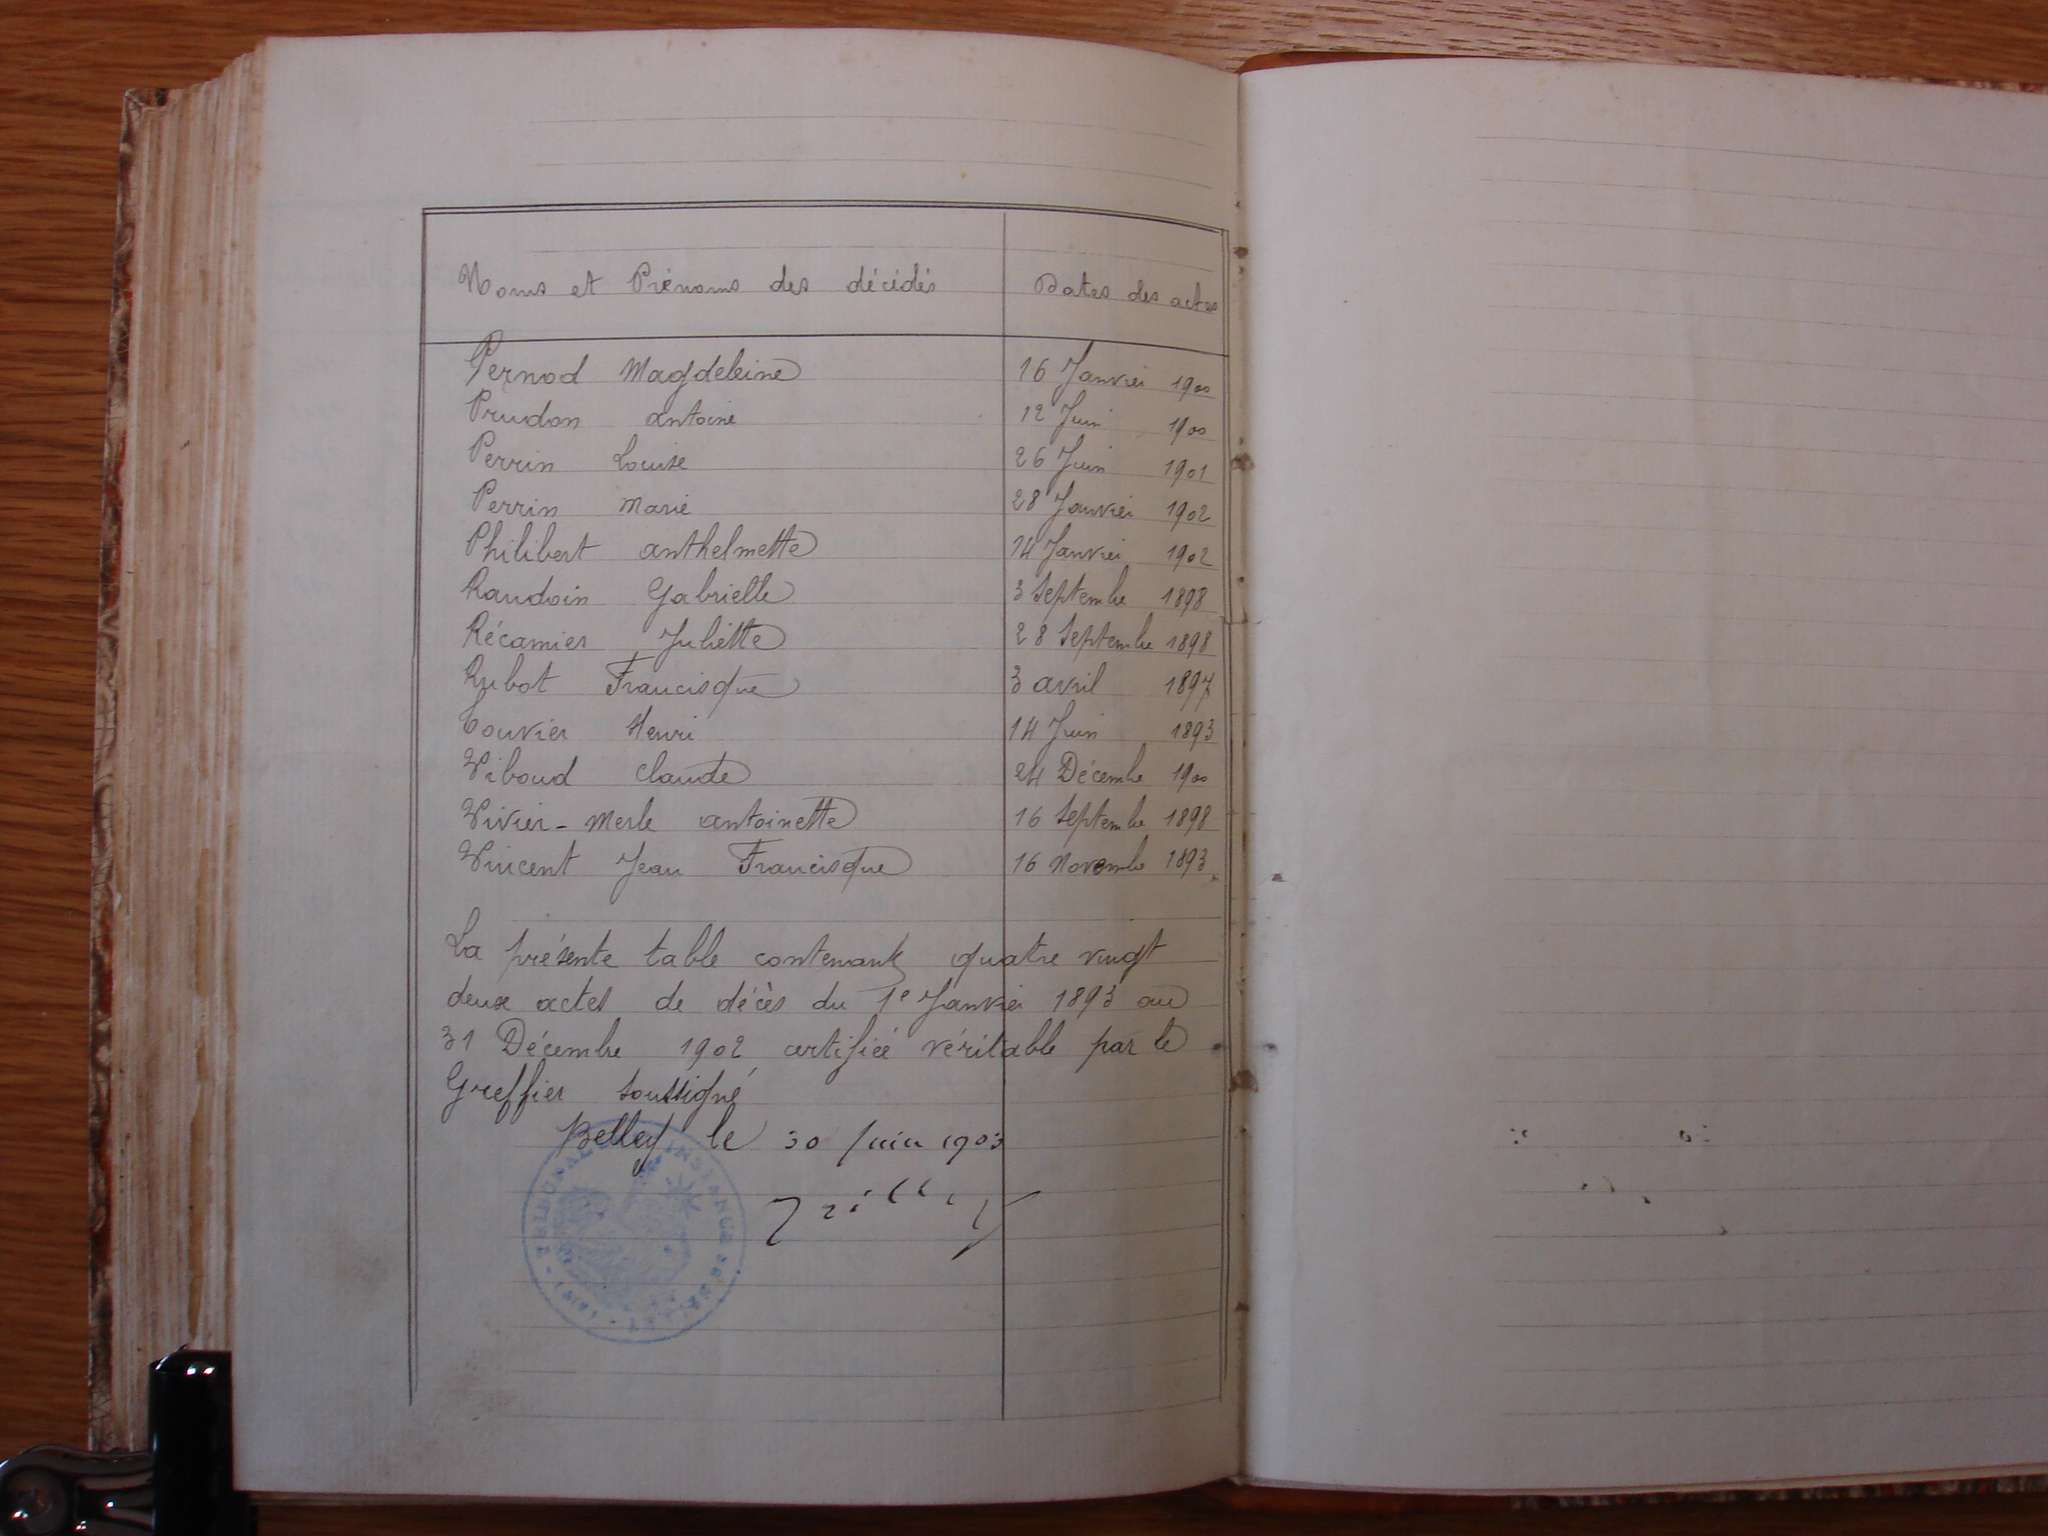 Noms et Prénoms des décédés Dates des actes
Pernod Magdeleine 16 Janvier 1900
Prudon antoine 12 Juin 1900
Perrin Louise 26 Juin 1901
Perrin Marie 28 Janvier 1902
Philibert anthelmette 14 Janvier 1902
Raudoin Gabrielle 3 Septembre 1898
Récamier Juliette 28 Septembre 1898
Rubot Francisque 3 avril 1897
Touvier Henri 14 Juin 1893
Viboud Claude 24 Décembre 1900
Vivier-Merle antoinette 16 Septembre 1898
Vincent Jean Francisque 16 Novembre 1893.
La présente table contenant quatre vingt
deux actes de décès du 1e Janvier 1893 au
31 Décembre 1902 certifiée véritable par le
Greffier soussigné
Belley le 30 Juin 1903
TRIBUNAL INSTANCE DE BELLEY (AIN)